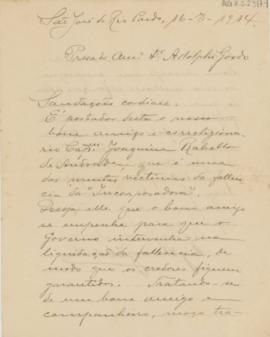 São José do Rio Pardo, 16-3-1914.
Presado Amº Dr. Adolpho Gordo
Saudações cordiaes.
É portador desta o nosso
bom amigo e correligiona-
rio Capm. Joaquim Rabello
de Andrade que é uma
das muitas victimas da fallen-
cia da "Incorporadora".
Deseja elle que o bom amigo
se empenhe para que o
Governo intervenha na
liquidação da fallencia, de
modo que os credores fiquem
garantidos. Tratando-se
de um bom amigo e
companheiro, moço tra-